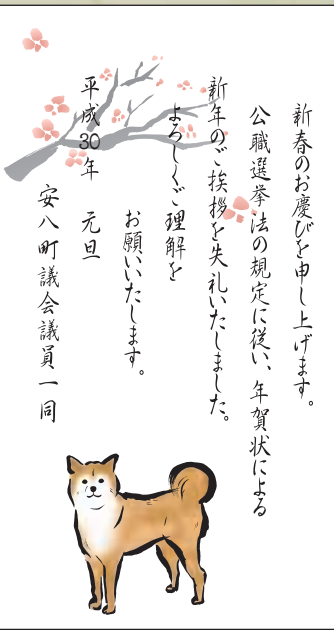 新春のお慶びを申し上げます。
公職選挙法の規定に従い、年賀状による
新年のご挨拶を失礼いたしました。
よろしくご理解を
お願いいたします。
平成30年 元旦
安八町議会議員一同